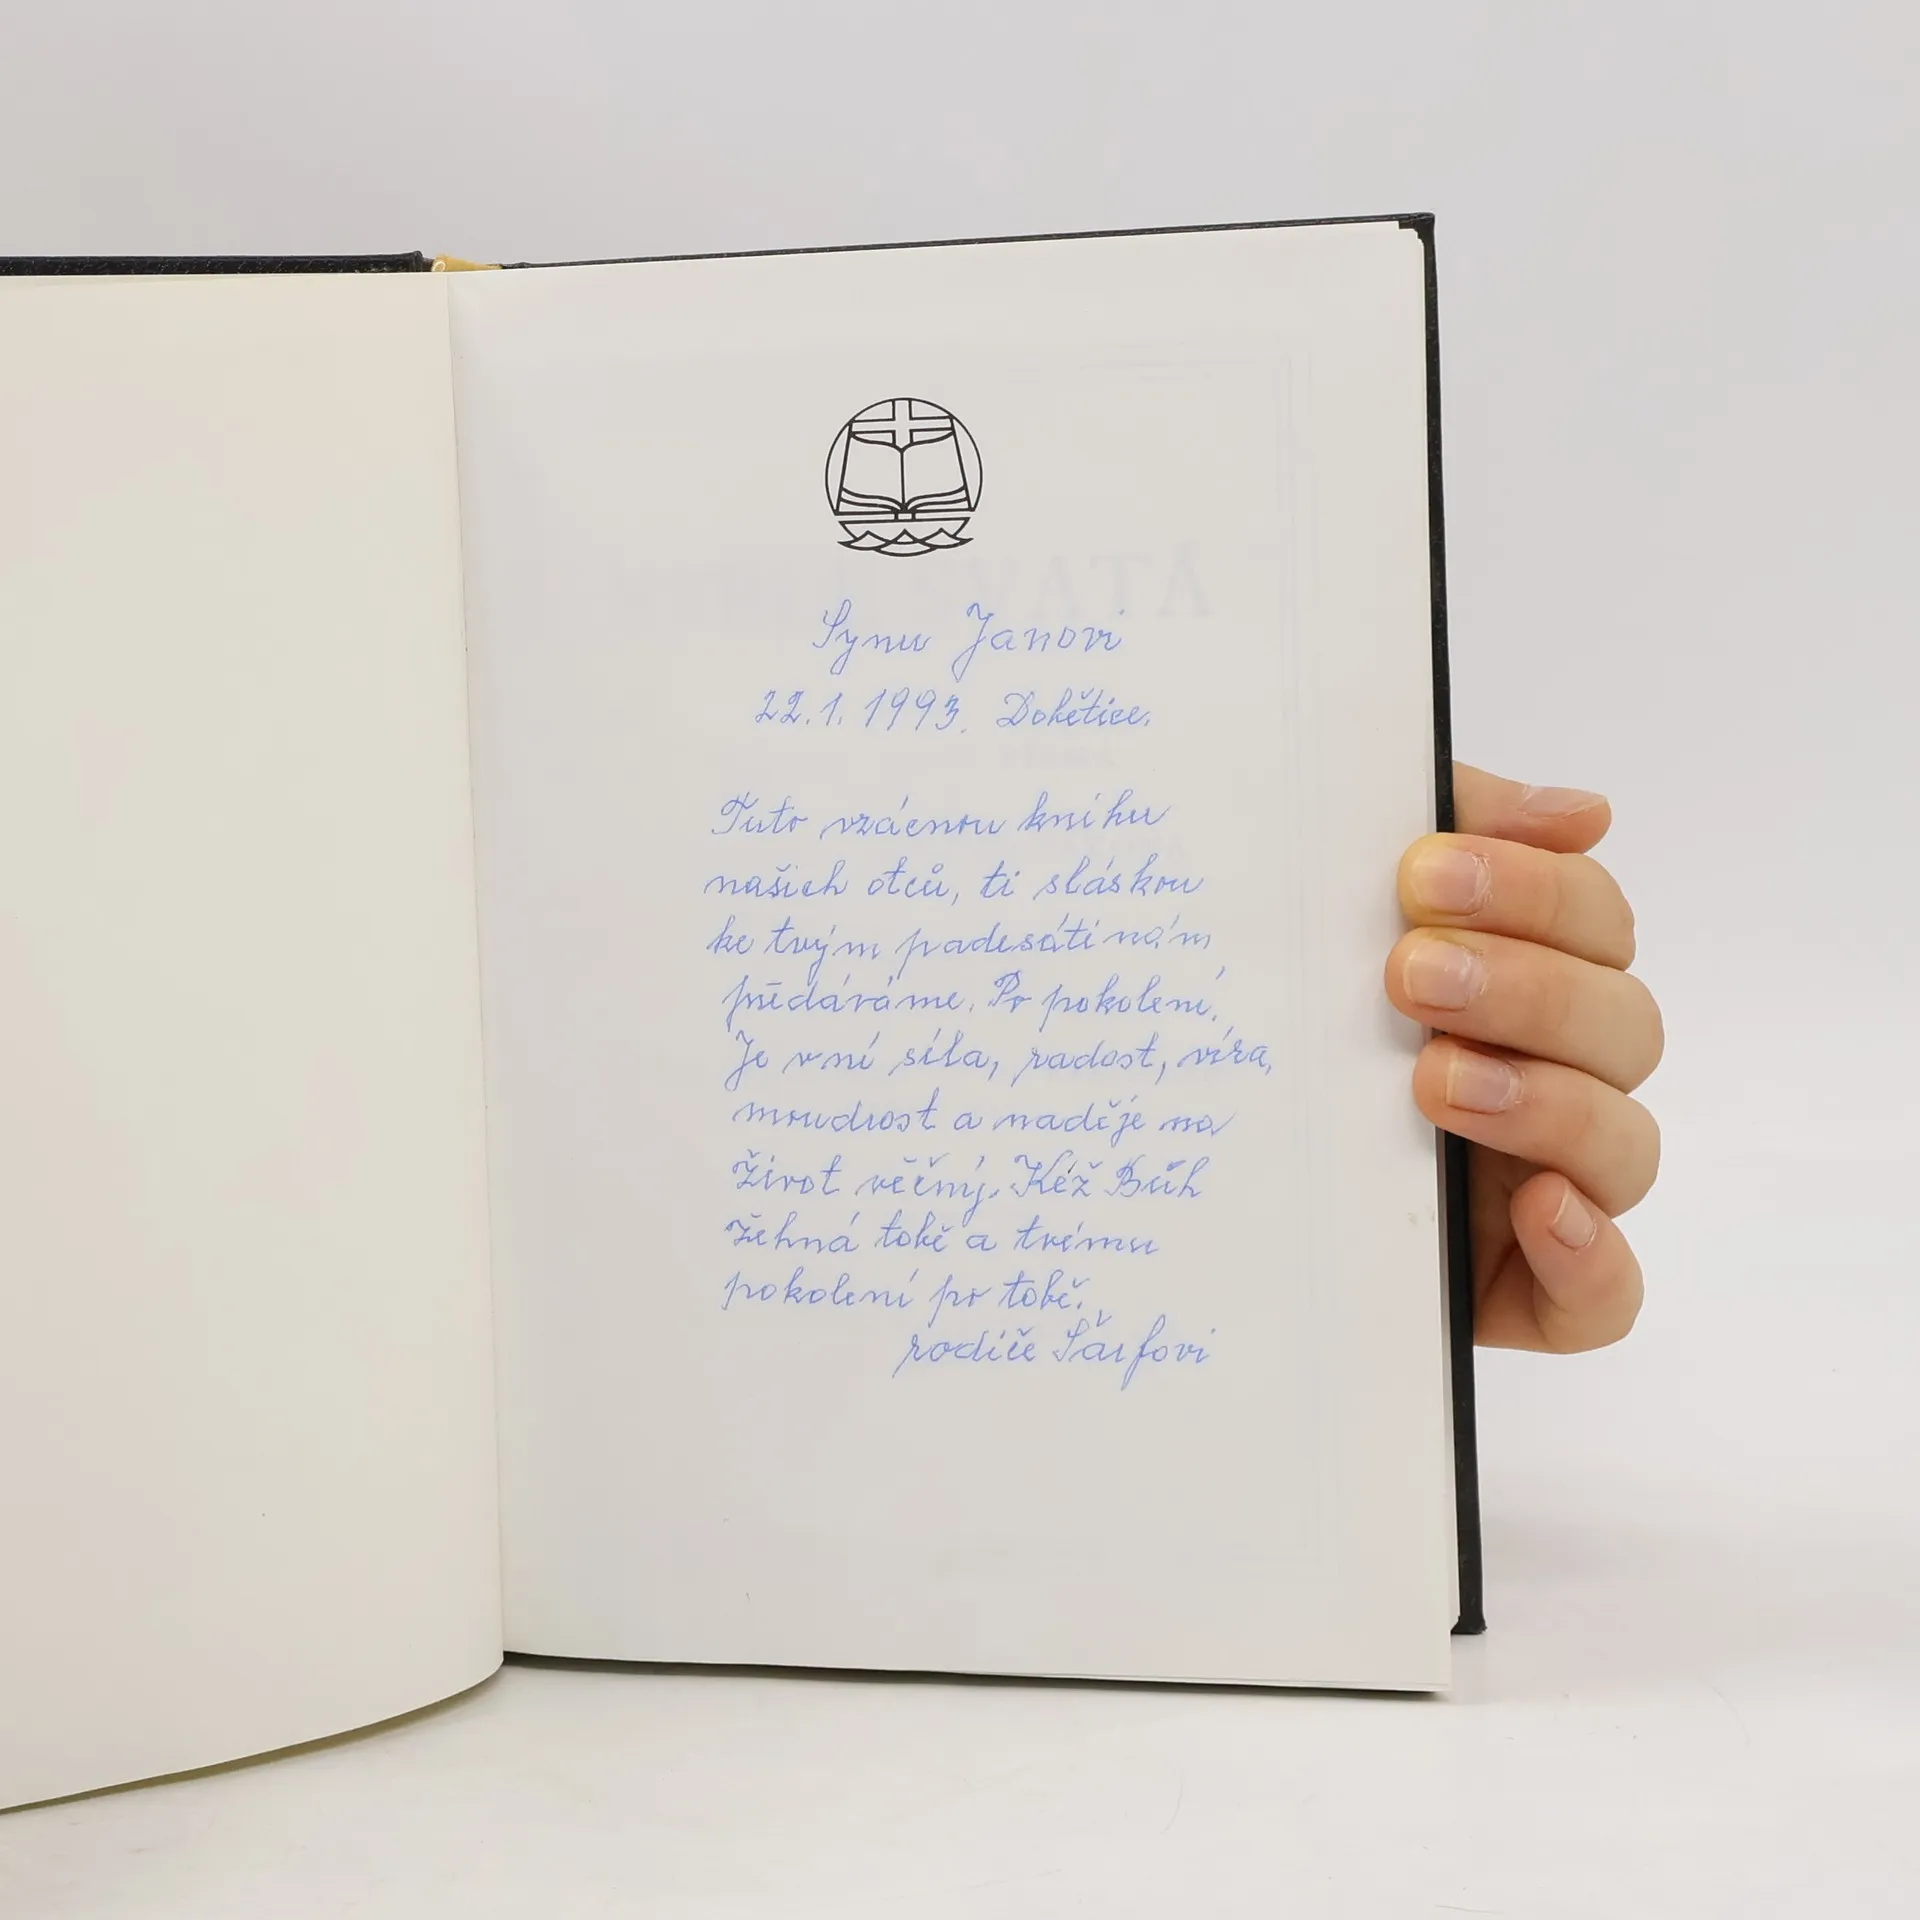 Synu Janovi
22.1.1993. Dobětice.
Tuto vzácnou knihu
našich otců, ti sláskou
ke tvým padesátinám
předáváme. Po pokolení.
Je vní síla, radost, víra,
moudrost a naděje na
život věčný. Kéž Bůh
žehná tobě a tvému
pokolení po tobě.
rodiče Šarfovi